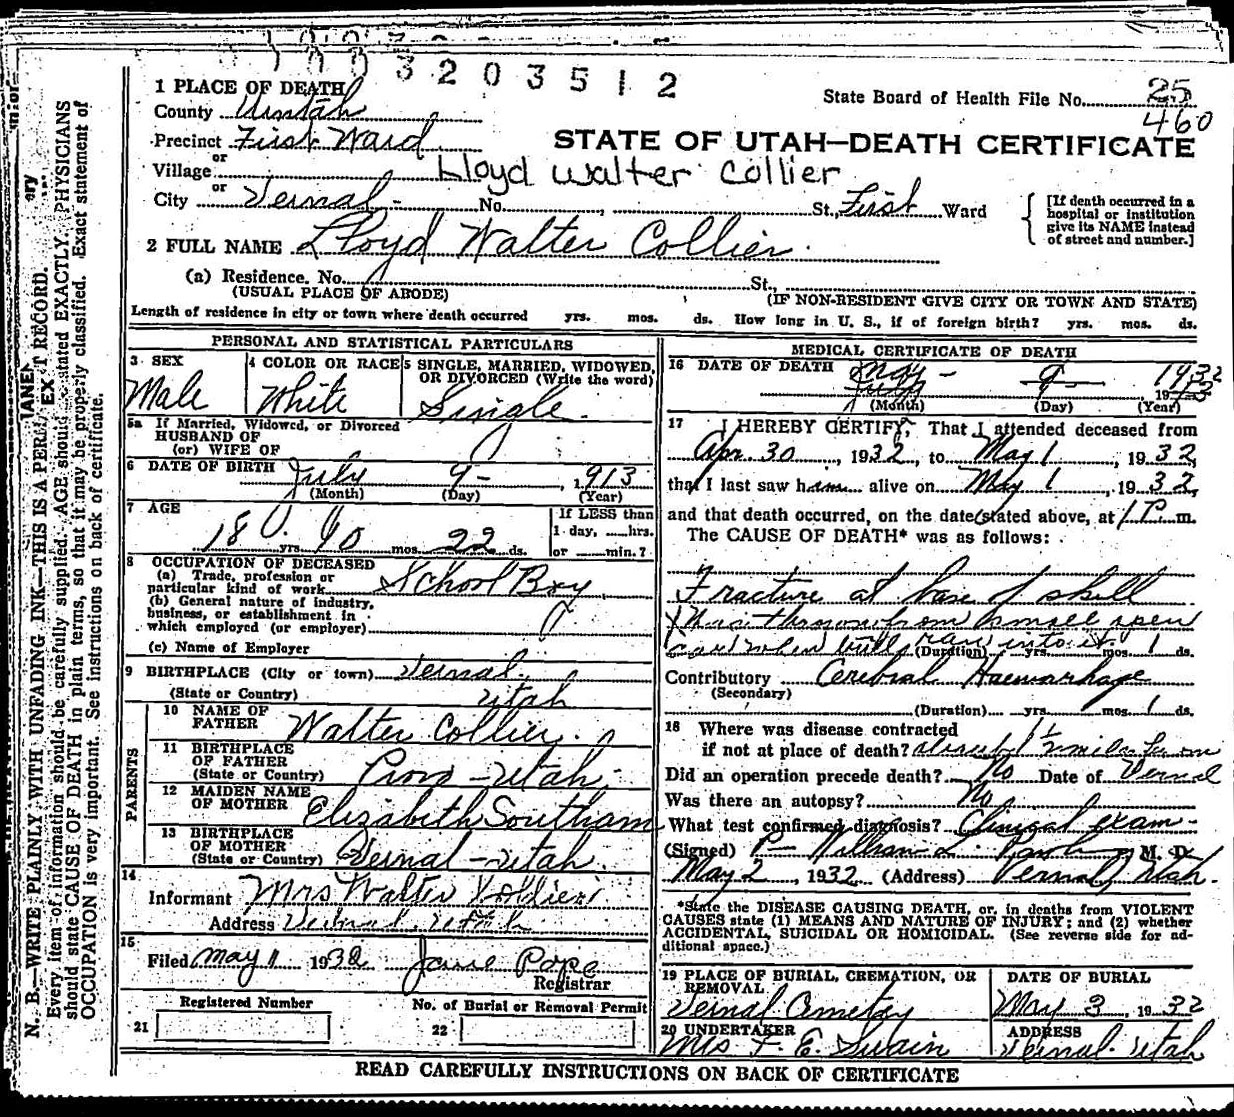 3 2 0 3 5 1 2
1 PLACE OF DEATH
State Board of Health File No. 25
460
County Uintah
Precinct First Ward
STATE OF UTAH—DEATH CERTIFICATE
or
Village
Lloyd Walter Collier
or
City Vernal No. , St., First Ward
[If death occurred in a hospital or institution give its NAME instead of street and number.]
2 FULL NAME Lloyd Walter Collier
(a) Residence. No. St.,
(USUAL PLACE OF ABODE) (IF NON-RESIDENT GIVE CITY OR TOWN AND STATE)
Length of residence in city or town where death occurred yrs. mos. ds. How long in U. S., if of foreign birth? yrs. mos. ds.
PERSONAL AND STATISTICAL PARTICULARS
3 SEX
Male
4 COLOR OR RACE
White
5 SINGLE, MARRIED, WIDOWED,
OR DIVORCED (Write the word)
Single
5a If Married, Widowed, or Divorced
HUSBAND OF
(or) WIFE OF
6 DATE OF BIRTH July 9 - 1913
(Month) (Day) (Year)
7 AGE
18 yrs. mos. 22 ds.
If LESS than
1 day, hrs.
or min.?
8 OCCUPATION OF DECEASED
(a) Trade, profession or
particular kind of work School Boy
(b) General nature of industry,
business, or establishment in
which employed (or employer)
(c) Name of Employer
9 BIRTHPLACE (City or town) Vernal
(State or Country) Utah
PARENTS
10 NAME OF
FATHER Walter Collier
11 BIRTHPLACE
OF FATHER
(State or Country) Provo - Utah
12 MAIDEN NAME
OF MOTHER Elizabeth Southam
13 BIRTHPLACE
OF MOTHER
(State or Country) Vernal - Utah
14
Informant Mrs Walter Collier
Address Vernal Utah
15
Filed May 11 1932 Pope
Registrar
Registered Number
21
No. of Burial or Removal Permit
22
MEDICAL CERTIFICATE OF DEATH
16 DATE OF DEATH May - 9 1932
(Month) (Day) (Year)
17 I HEREBY CERTIFY, That I attended deceased from
Apr. 30, 1932, to May 1, 1932,
that I last saw him alive on May 1, 1932,
and that death occurred, on the date stated above, at 1 P. m.
The CAUSE OF DEATH* was as follows:
Fracture at base of skull
Was thrown from small open
car when bull ran into it
(Duration) yrs. mos. 1 ds.
Contributory Cerebral Haemorrhage
(Secondary)
(Duration) yrs. mos. 1 ds.
18 Where was disease contracted
if not at place of death? about miles from
Did an operation precede death? No Date of Vernal
Was there an autopsy? No
What test confirmed diagnosis? Clinical exam -
(Signed) William L. M. D.
May 2, 1932 (Address) Vernal, Utah.
*State the DISEASE CAUSING DEATH, or, in deaths from VIOLENT
CAUSES state (1) MEANS AND NATURE OF INJURY; and (2) whether
ACCIDENTAL, SUICIDAL OR HOMICIDAL. (See reverse side for ad-
ditional space.)
19 PLACE OF BURIAL, CREMATION, OR
REMOVAL
Vernal Cemetery
DATE OF BURIAL
May 3, 1932
20 UNDERTAKER
Mrs F. E. Swain
ADDRESS
Vernal Utah
READ CAREFULLY INSTRUCTIONS ON BACK OF CERTIFICATE
N. B.—WRITE PLAINLY WITH UNFADING INK—THIS IS A PERMANENT RECORD.
Every item of information should be carefully supplied. AGE should stated EXACTLY. PHYSICIANS
should state CAUSE OF DEATH in plain terms, so that it may be properly classified. Exact statement of
OCCUPATION is very important. See instructions on back of certificate.